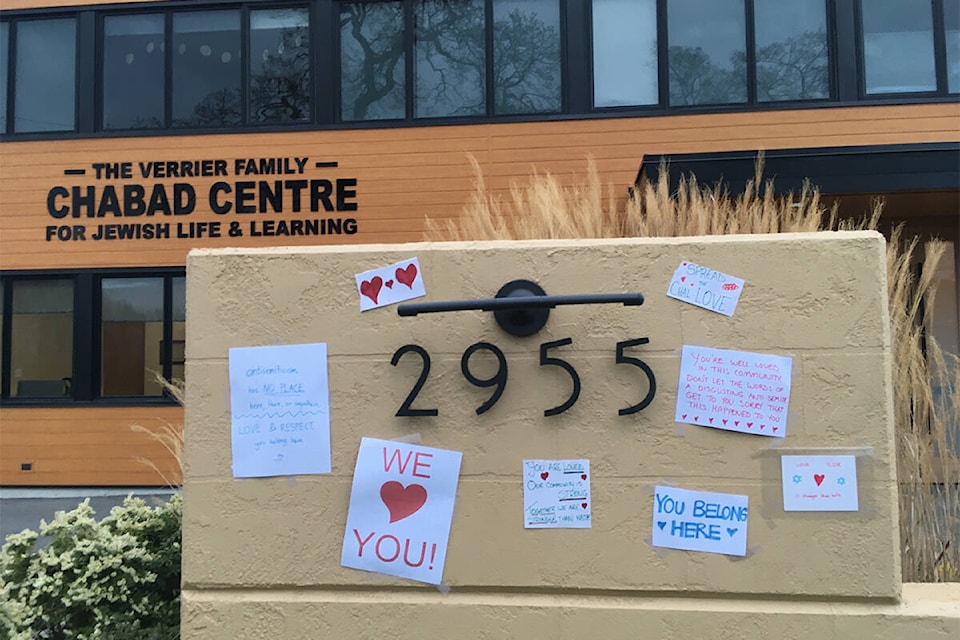 THE VERRIER FAMILY
CHABAD CENTRE
FOR JEWISH LIFE & LEARNING
2955
SPREAD
LOVE
antisemitism
has NO PLACE
here, there, or anywhere
LOVE & RESPECT
you belong here
YOU'RE WELL LOVED
IN THIS COMMUNITY
DON'T LET THE WORDS OF
A DISGUSTING ANTI-SEMITE
GET TO YOU SORRY THAT
THIS HAPPENED TO YOU
WE
YOU!
YOU ARE LOVED
OUR COMMUNITY IS
STRONG
TOGETHER WE ARE
STRONGER THAN HATE
YOU BELONG
HERE
LOVE
is stronger than hate